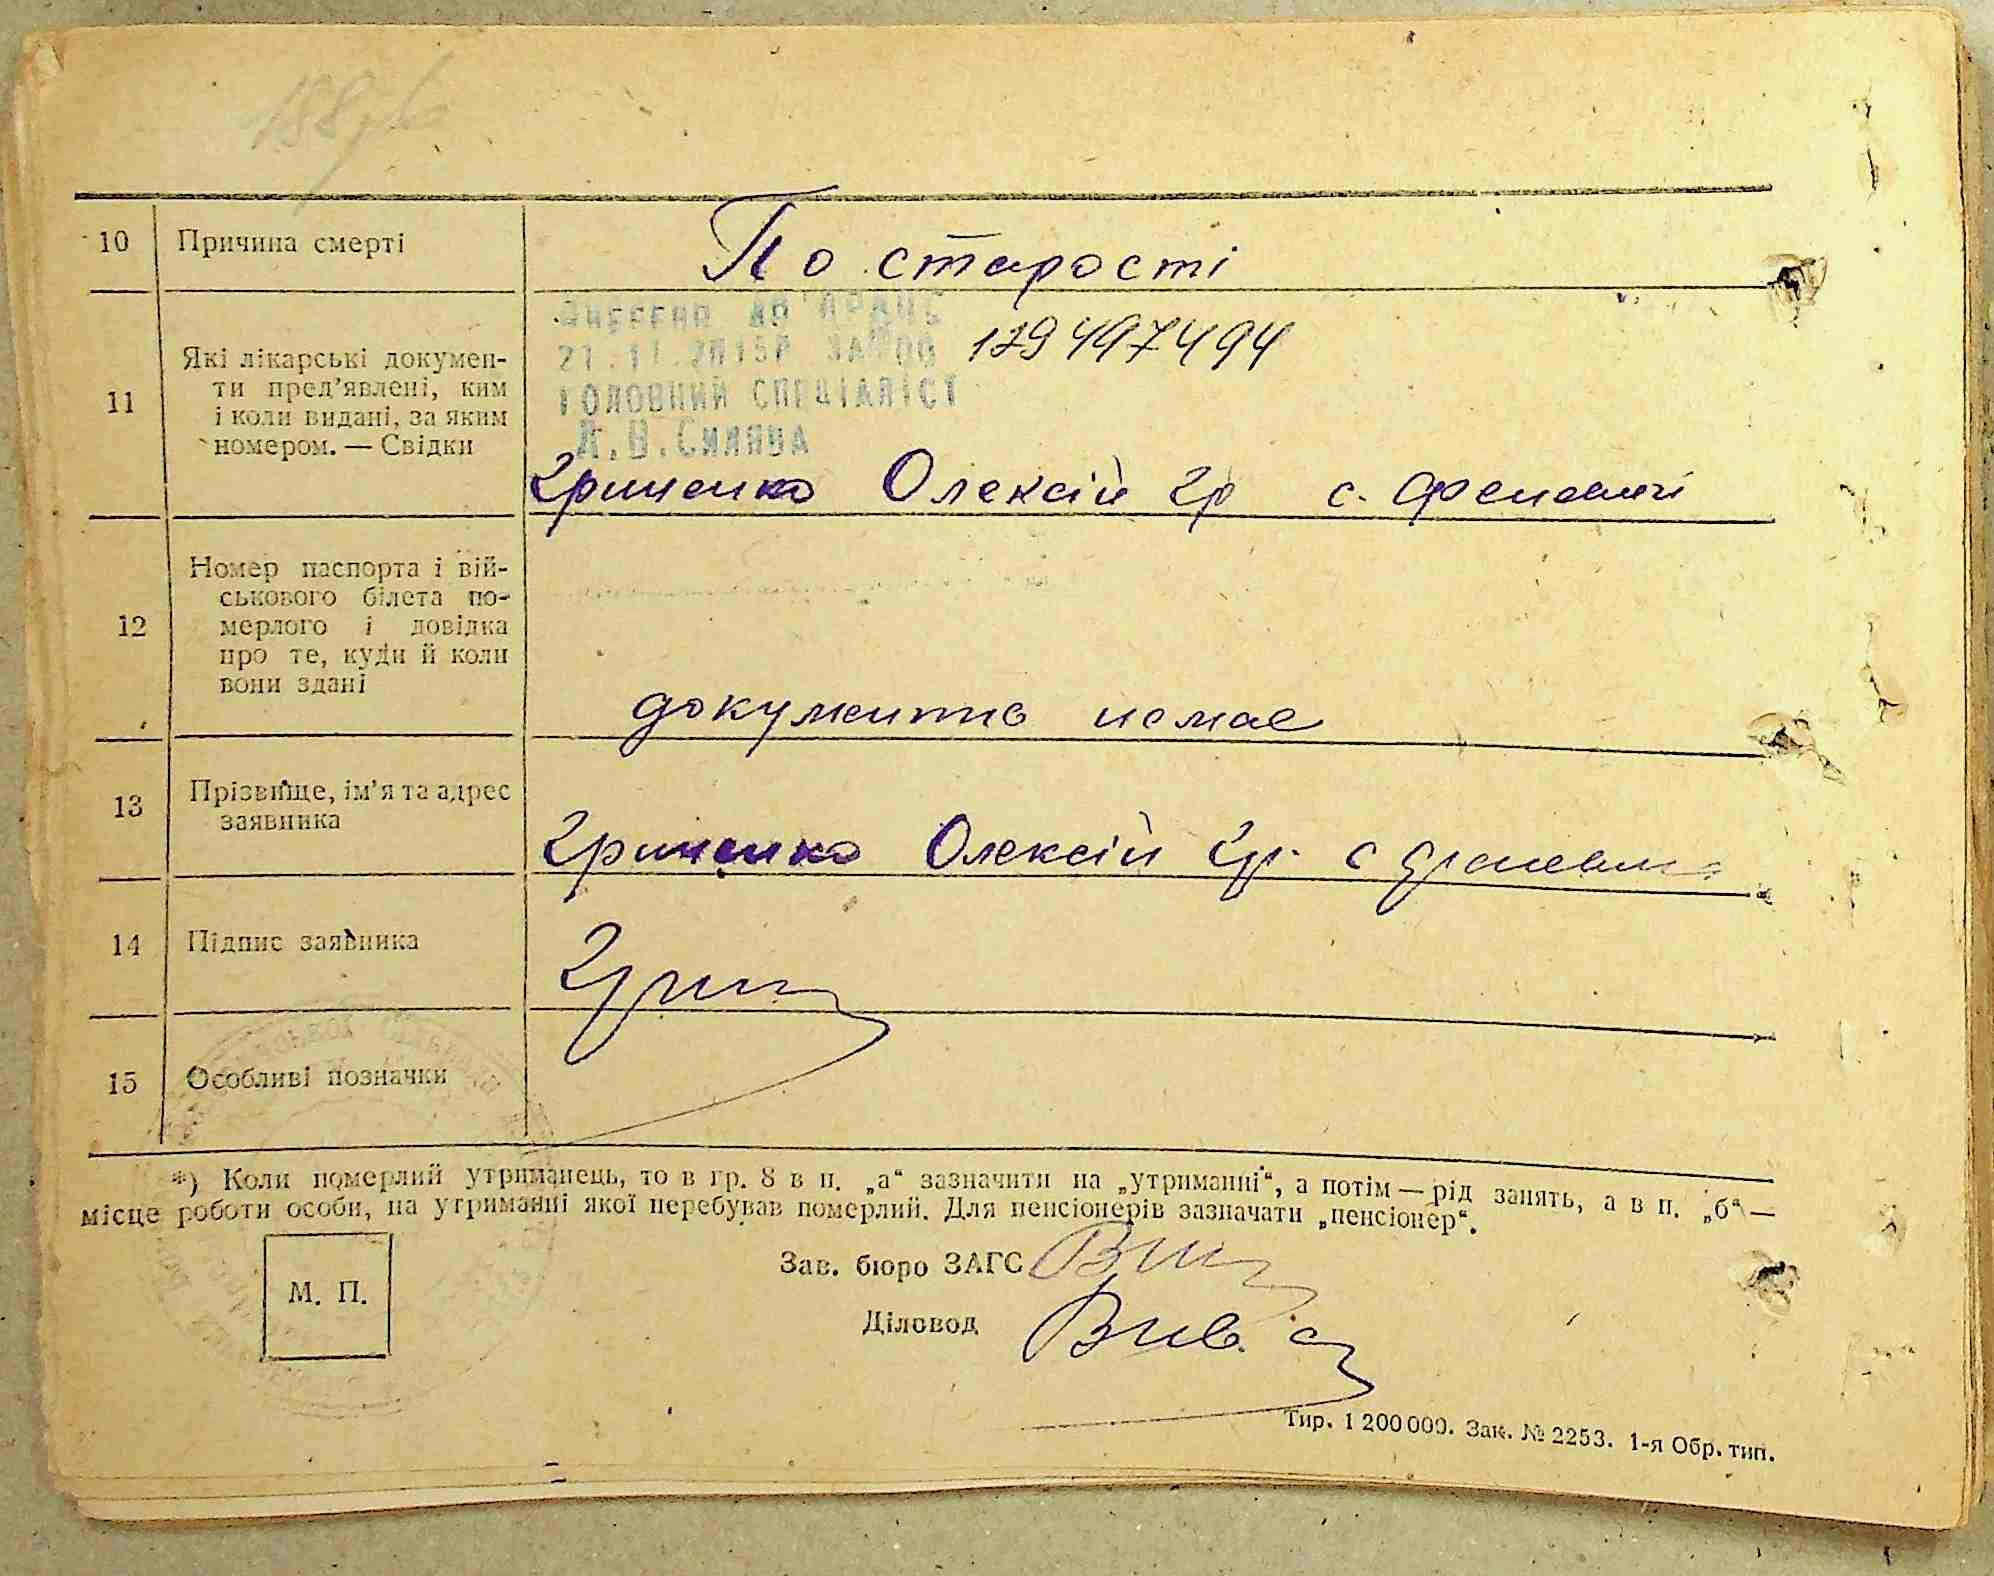 10 Причина смерті По старості
11 Які лікарські докумен-
ти пред’явлені, ким
і коли видані, за яким
номером. — Свідки
ГОЛОВНИЙ СПЕЦІАЛІСТ
129497494
Гриценко Олексій Гр с.
12 Номер паспорта і вій-
ськового білета по-
мерлого і довідка
про те, куди й коли
вони здані
документів немає
13 Прізвище, ім’я та адрес
заявника
Гриценко Олексій Гр. с
14 Підпис заявника
15 Особливі позначки
*) Коли померлий утриманець, то в гр. 8 в п. „а“ зазначити на „утриманні“, а потім — рід занять, а в п. „б“ —
місце роботи особи, на утриманні якої перебував померлий. Для пенсіонерів зазначати „пенсіонер“.
М. П.
Зав. бюро ЗАГС
Діловод
Тир. 1 200 000. Зак. № 2253. 1-я Обр. тип.